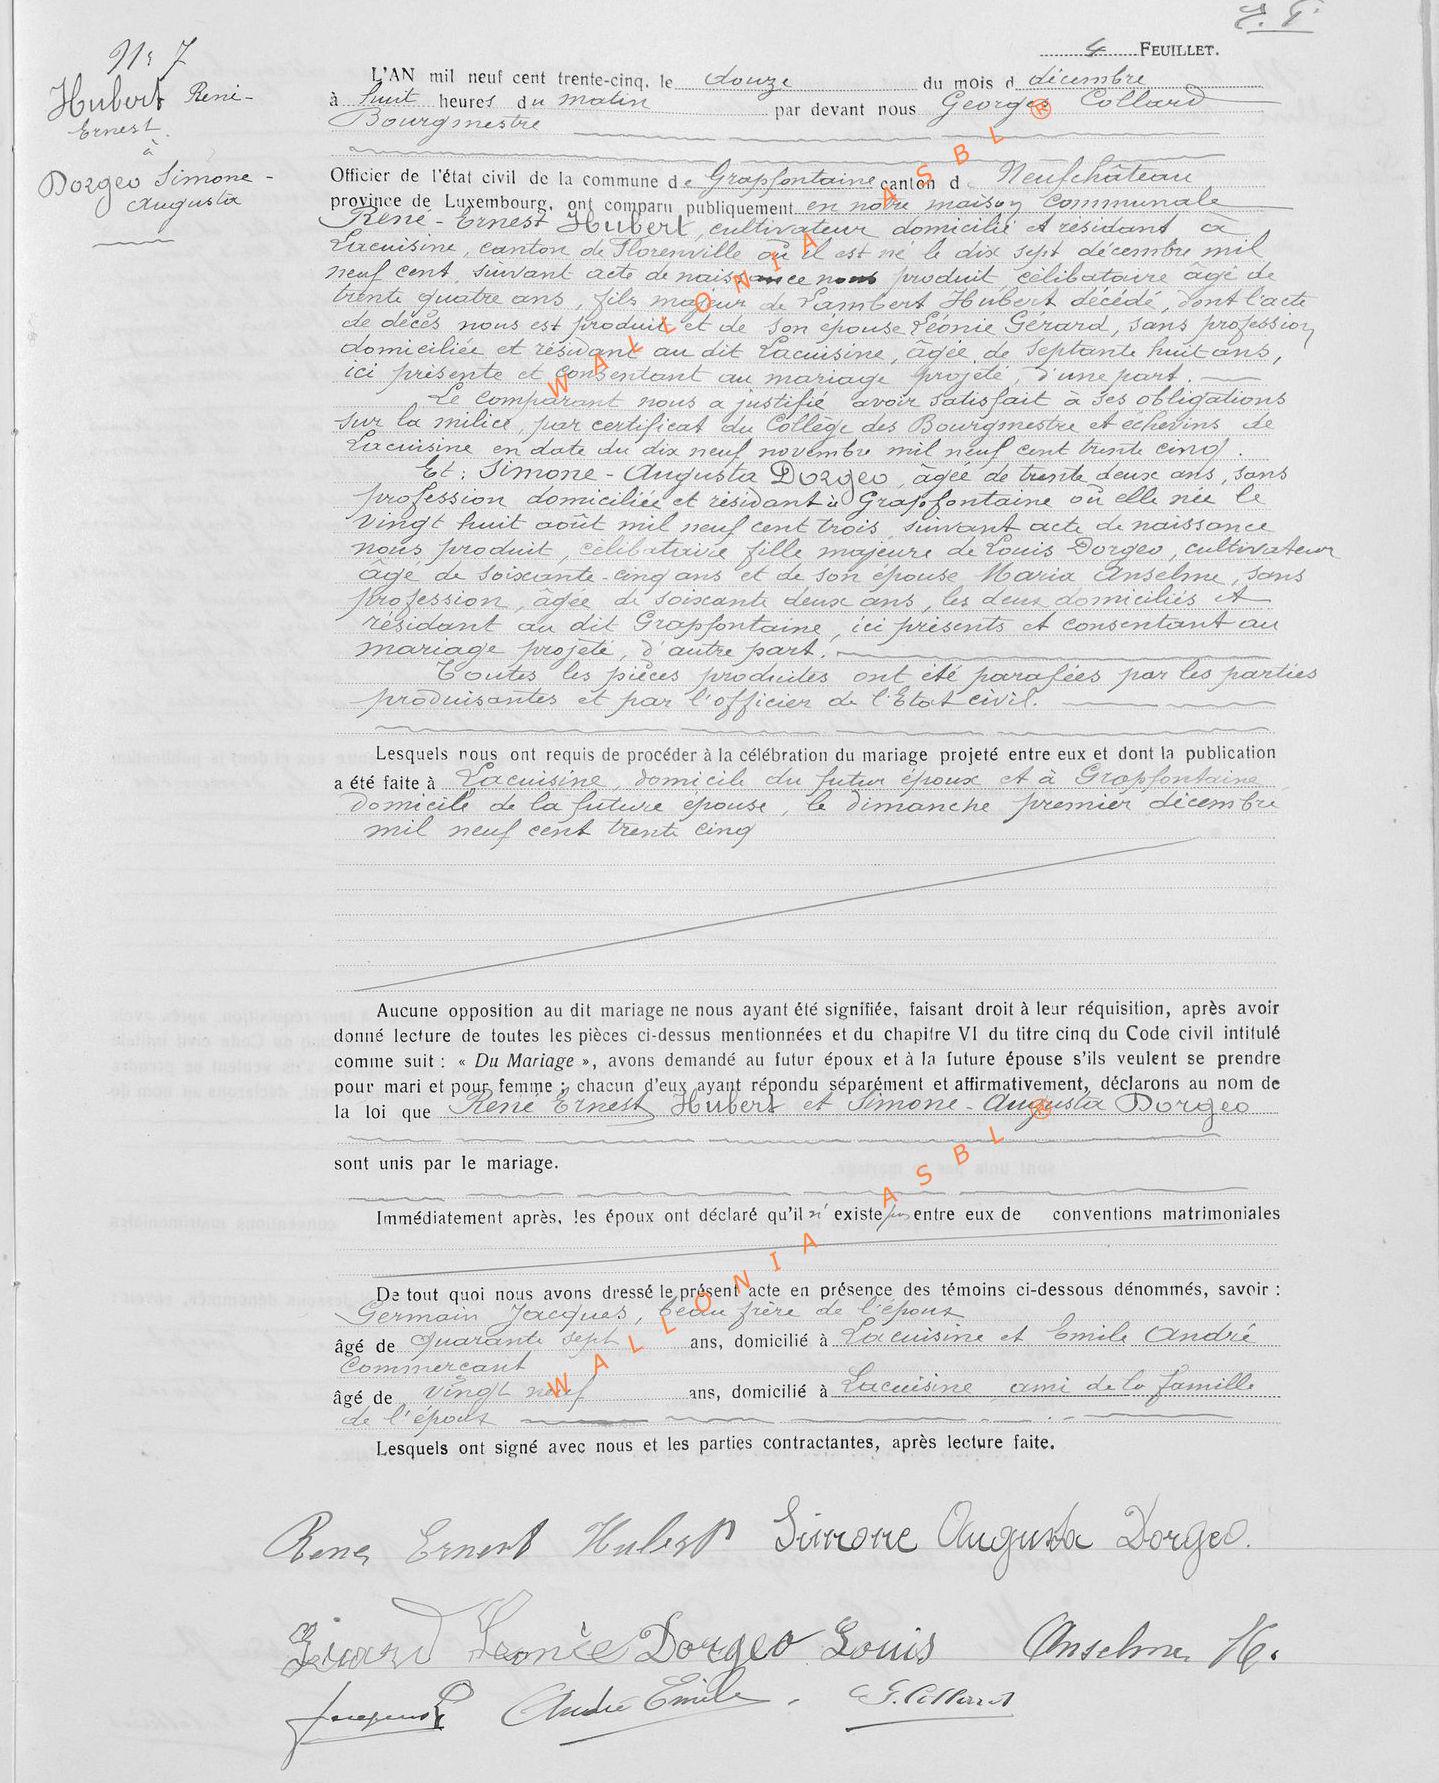 4 FEUILLET.
N° 7
Hubert René-
Ernest
à
Dorgeo Simone-
Augusta
L'AN mil neuf cent trente-cinq, le douze du mois d décembre
à huit heures du matin par devant nous Georges Collard
Bourgmestre
Officier de l'état civil de la commune de Grapfontaine canton d Neufchâteau
province de Luxembourg, ont comparu publiquement en notre maison communale
René-Ernest Hubert, cultivateur domicilié et résidant à
Lacuisine, canton de Florenville où il est né le dix sept décembre mil
neuf cent, suivant acte de naissance nous produit, célibataire âgé de
trente quatre ans, fils majeur de Lambert Hubert décédé, dont l'acte
de décès nous est produit et de son épouse Léonie Gérard, sans profession
domiciliée et résidant au dit Lacuisine, âgée de septante huit ans,
ici présente et consentant au mariage projeté, d'une part.
Le comparant nous a justifié avoir satisfait à ses obligations
sur la milice, par certificat du Collège des Bourgmestre et échevins de
Lacuisine en date du dix neuf novembre mil neuf cent trente cinq.
Et: Simone-Augusta Dorgeo, âgée de trente deux ans, sans
profession domiciliée et résidant à Grapfontaine où elle née le
vingt huit août mil neuf cent trois, suivant acte de naissance
nous produit, célibataire fille majeure de Louis Dorgeo, cultivateur
âgé de soixante-cinq ans et de son épouse Maria Anselme, sans
profession, âgée de soixante deux ans, les deux domiciliés et
résidant au dit Grapfontaine, ici présents et consentant au
mariage projeté, d'autre part.
Toutes les pièces produites ont été parafées par les parties
produisantes et par l'officier de l'Etat civil.
Lesquels nous ont requis de procéder à la célébration du mariage projeté entre eux et dont la publication
a été faite à Lacuisine, domicile du futur époux et à Grapfontaine
domicile de la future épouse, le dimanche premier décembre
mil neuf cent trente cinq
Aucune opposition au dit mariage ne nous ayant été signifiée, faisant droit à leur réquisition, après avoir
donné lecture de toutes les pièces ci-dessus mentionnées et du chapitre VI du titre cinq du Code civil intitulé
comme suit : « Du Mariage », avons demandé au futur époux et à la future épouse s'ils veulent se prendre
pour mari et pour femme ; chacun d'eux ayant répondu séparément et affirmativement, déclarons au nom de
la loi que René Ernest Hubert et Simone-Augusta Dorgeo
sont unis par le mariage.
Immédiatement après, les époux ont déclaré qu'il n'existe pas entre eux de conventions matrimoniales
De tout quoi nous avons dressé le présent acte en présence des témoins ci-dessous dénommés, savoir :
Germain Jacques, beau frère de l'époux
âgé de quarante sept ans, domicilié à Lacuisine et Emile André
commerçant
âgé de vingt neuf ans, domicilié à Lacuisine ami de la famille
de l'époux
Lesquels ont signé avec nous et les parties contractantes, après lecture faite.
René Ernest Hubert Simone Augusta Dorgeo.
Gérard Léonie Dorgeo Louis Anselme M.
Jacques G André Emile. G. Collard
WALLONIA ASBL ®
WALLONIA ASBL ®